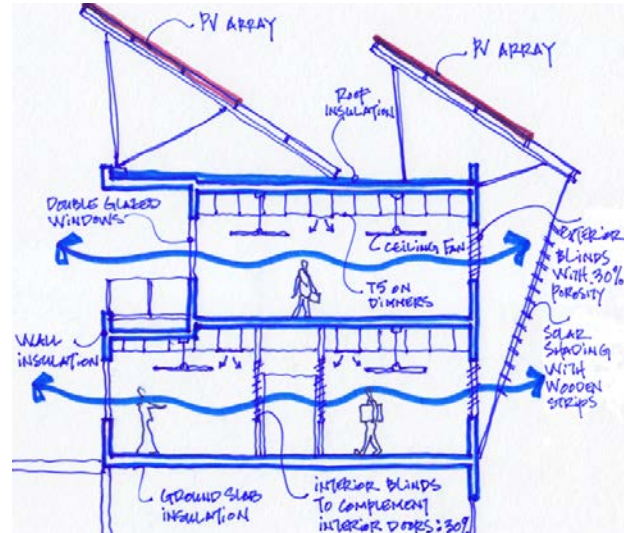 PV ARRAY
PV ARRAY
ROOF
INSULATION
DOUBLE GLAZED
WINDOWS
CEILING FAN
EXTERIOR
BLINDS
WITH 30%
POROSITY
T5 ON
DIMMERS
WALL
INSULATION
SOLAR
SHADING
WITH
WOODEN
STRIPS
GROUND SLAB
INSULATION
INTERIOR BLINDS
TO COMPLEMENT
INTERIOR DOORS: 30%